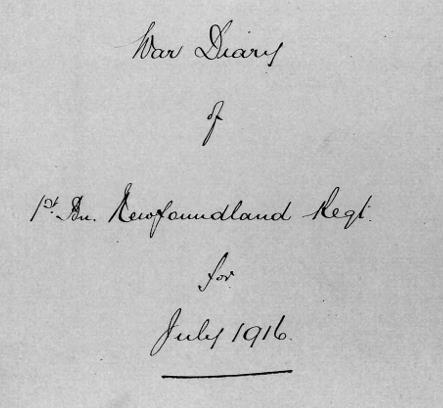 War Diary
of
1st. Bn. Newfoundland Regt.
for
July 1916.